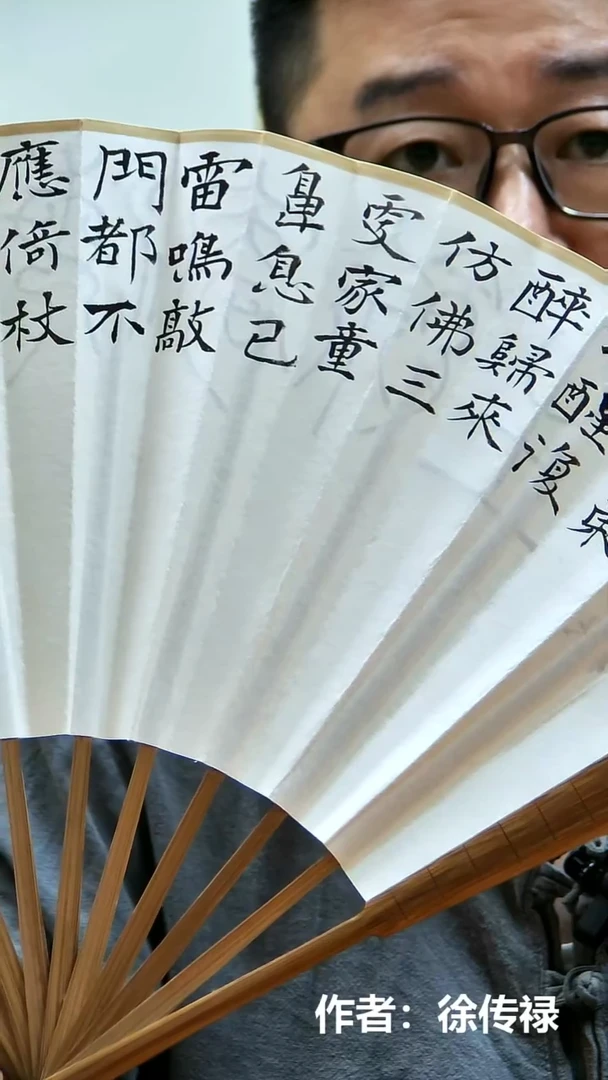 醒復
醉歸來
仿佛三
更家童
鼻息已
雷鳴敲
門都不
應倚杖
作者：徐传禄